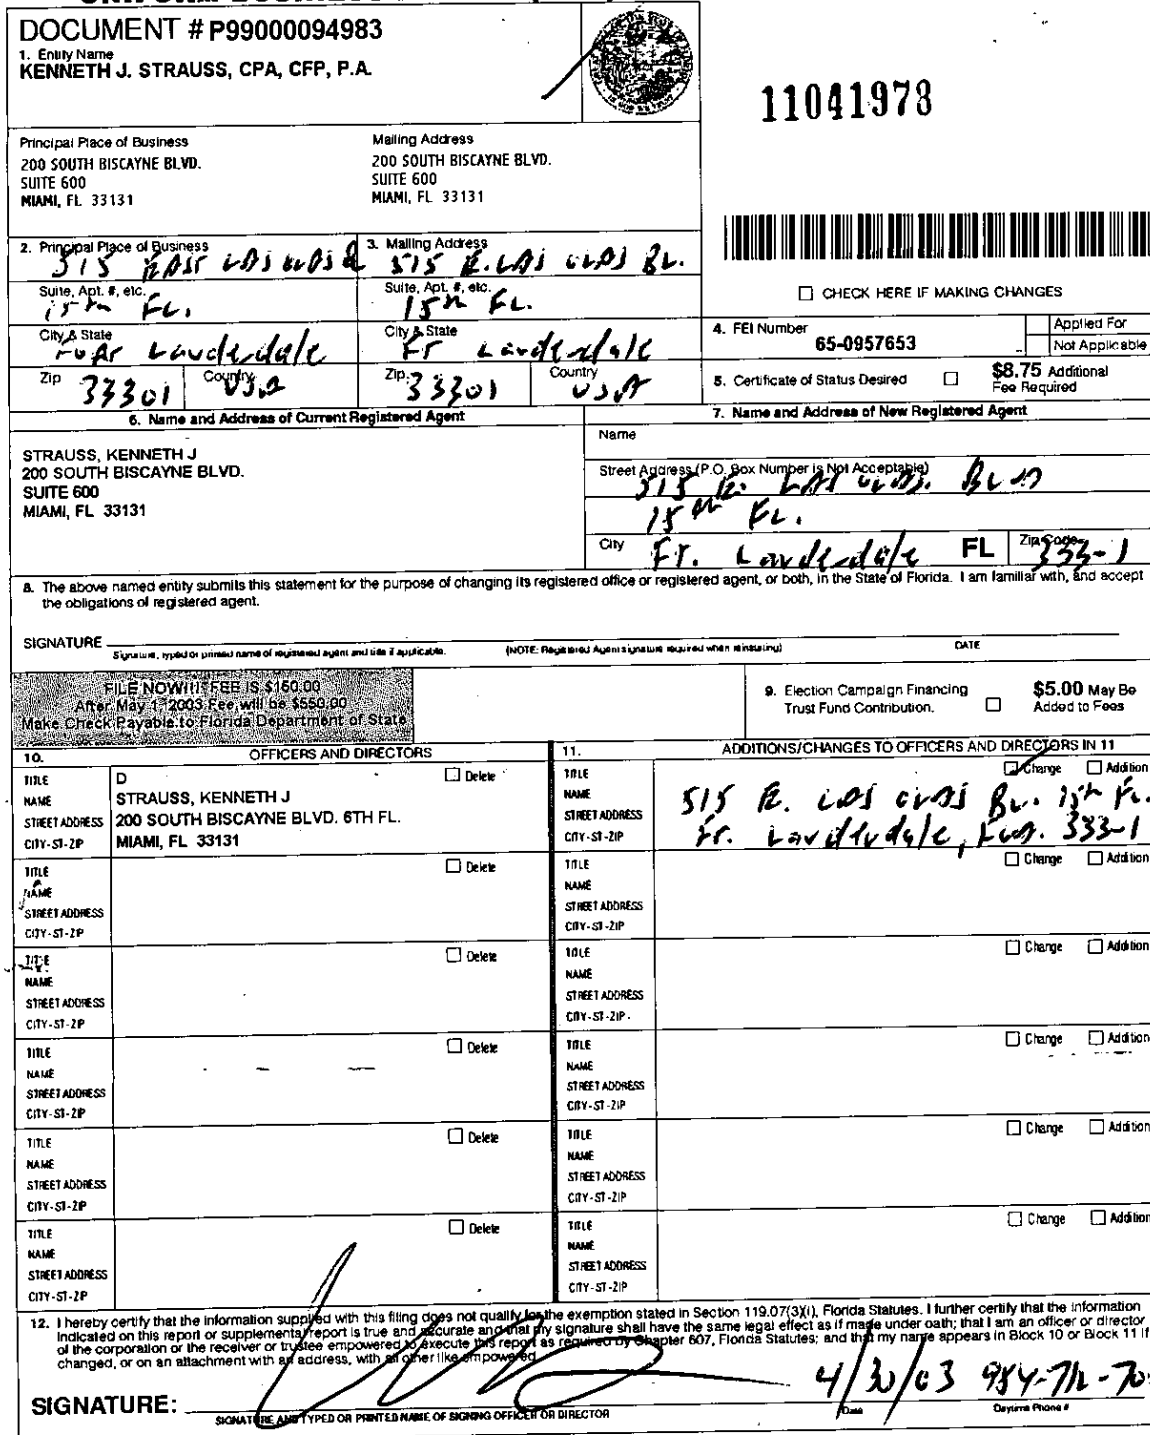 DOCUMENT # P99000094983
1. Entity Name
KENNETH J. STRAUSS, CPA, CFP, P.A.
11041978
Principal Place of Business
200 SOUTH BISCAYNE BLVD.
SUITE 600
MIAMI, FL 33131
Mailing Address
200 SOUTH BISCAYNE BLVD.
SUITE 600
MIAMI, FL 33131
2. Principal Place of Business
515 EAST LAS OLAS B
Suite, Apt. #, etc.
15th FL.
City & State
Fort Lauderdale
Zip 33301
Country USA
3. Mailing Address
515 E. LAS OLAS BL.
Suite, Apt. #, etc.
15th FL.
City & State
Ft Lauderdale
Zip 33301
Country USA
CHECK HERE IF MAKING CHANGES
4. FEI Number
65-0957653
Applied For
Not Applicable
5. Certificate of Status Desired
$8.75 Additional
Fee Required
6. Name and Address of Current Registered Agent
STRAUSS, KENNETH J
200 SOUTH BISCAYNE BLVD.
SUITE 600
MIAMI, FL 33131
7. Name and Address of New Registered Agent
Name
Street Address (P.O. Box Number is Not Acceptable)
515 E. LAS OLAS. BLVD
15th FL.
City Ft. Lauderdale FL Zip Code 333-1
8. The above named entity submits this statement for the purpose of changing its registered office or registered agent, or both, in the State of Florida. I am familiar with, and accept
the obligations of registered agent.
SIGNATURE
Signature, typed or printed name of registered agent and title if applicable. (NOTE: Registered Agent signature required when reinstating) DATE
FILE NOW!!! FEE IS $150.00
After May 1, 2003 Fee will be $550.00
Make Check Payable to Florida Department of State
9. Election Campaign Financing
Trust Fund Contribution.
$5.00 May Be
Added to Fees
10. OFFICERS AND DIRECTORS
TITLE D Delete
NAME STRAUSS, KENNETH J
STREET ADDRESS 200 SOUTH BISCAYNE BLVD. 6TH FL.
CITY-ST-ZIP MIAMI, FL 33131
TITLE Delete
NAME
STREET ADDRESS
CITY-ST-ZIP
TITLE Delete
NAME
STREET ADDRESS
CITY-ST-ZIP
TITLE Delete
NAME
STREET ADDRESS
CITY-ST-ZIP
TITLE Delete
NAME
STREET ADDRESS
CITY-ST-ZIP
TITLE Delete
NAME
STREET ADDRESS
CITY-ST-ZIP
11. ADDITIONS/CHANGES TO OFFICERS AND DIRECTORS IN 11
TITLE Change Addition
NAME 515 E. LAS OLAS BL. 15th FL.
STREET ADDRESS
CITY-ST-ZIP Ft. Lauderdale, Fla. 333-1
TITLE Change Addition
NAME
STREET ADDRESS
CITY-ST-ZIP
TITLE Change Addition
NAME
STREET ADDRESS
CITY-ST-ZIP
TITLE Change Addition
NAME
STREET ADDRESS
CITY-ST-ZIP
TITLE Change Addition
NAME
STREET ADDRESS
CITY-ST-ZIP
TITLE Change Addition
NAME
STREET ADDRESS
CITY-ST-ZIP
12. I hereby certify that the information supplied with this filing does not qualify for the exemption stated in Section 119.07(3)(i), Florida Statutes. I further certify that the information
indicated on this report or supplemental report is true and accurate and that my signature shall have the same legal effect as if made under oath; that I am an officer or director
of the corporation or the receiver or trustee empowered to execute this report as required by Chapter 607, Florida Statutes; and that my name appears in Block 10 or Block 11 if
changed, or on an attachment with an address, with all other like empowered.
4/30/03
SIGNATURE:
SIGNATURE AND TYPED OR PRINTED NAME OF SIGNING OFFICER OR DIRECTOR Date Daytime Phone #